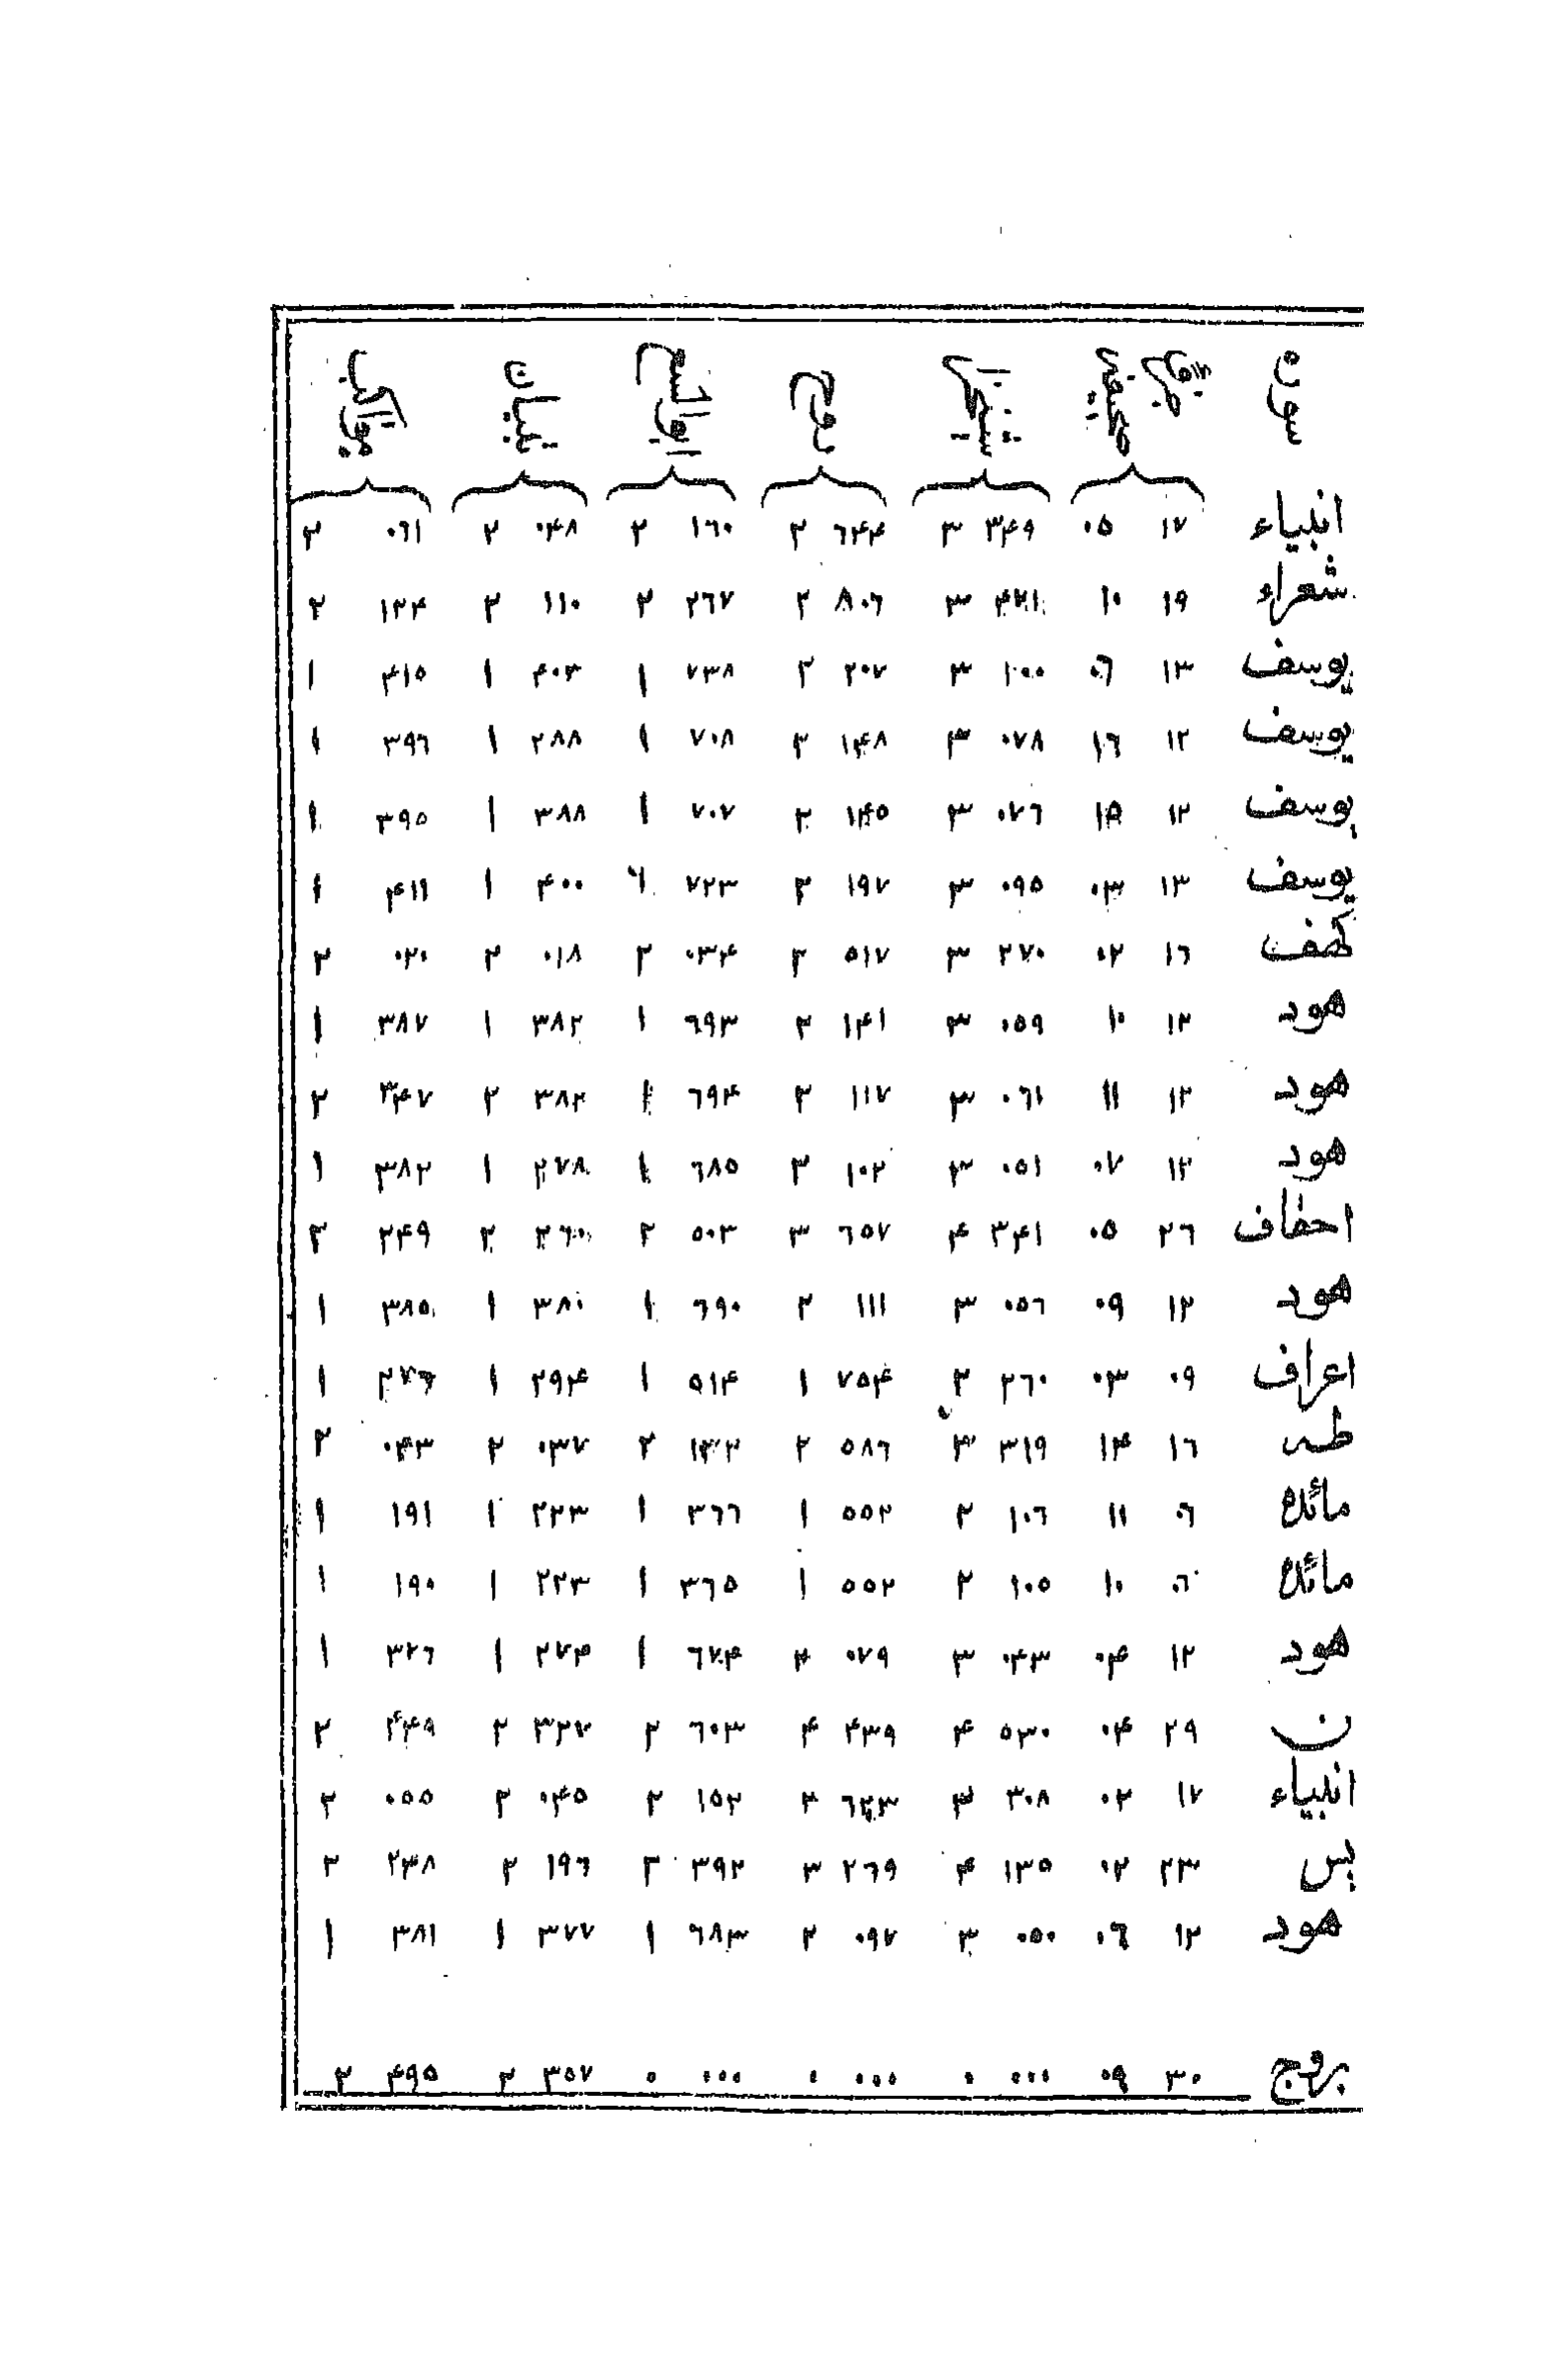 سوره
انبیاء ١٧ ٠٥ ٣٤٩ ٣ ٦٤٤ ٢ ١٦٠ ٢ ٠٤٨ ٢ ٠٦١ ٢
شعراء ١٩ ١٠ ٤٢١ ٣ ٨٠٦ ٢ ٢٦٧ ٢ ١١٠ ٢ ١٢٤ ٢
یوسف ١٣ ٠٦ ١٠٠ ٣ ٢٠٧ ٢ ٧٣٨ ١ ٤٠٣ ١ ٤١٥ ١
یوسف ١٢ ١٦ ٠٧٨ ٣ ١٤٨ ٢ ٧٠٨ ١ ٢٨٨ ١ ٣٩٦ ١
یوسف ١٢ ٠٧٦ ٣ ١٤٥ ٢ ٧٠٧ ١ ٣٨٨ ١ ٣٩٥ ١
یوسف ١٣ ٠٣ ٠٩٥ ٣ ١٩٧ ٢ ٧٢٣ ٤٠٠ ١ ٤١١ ١
کهف ١٦ ٠٢ ٢٧٠ ٣ ٥١٧ ٢ ٠٣٤ ٢ ٠١٨ ٢ ٠٢٠ ٢
هود ١٢ ١٠ ٠٥٩ ٣ ١٤١ ٢ ٦٩٣ ١ ٣٨٢ ١ ٣٨٧ ١
هود ١٢ ١١ ٠٦١ ٣ ١١٧ ٢ ٦٩٤ ١ ٣٨٢ ٢ ٣٤٧ ٢
هود ١٢ ٠٧ ٠٥١ ٣ ١٠٢ ٢ ٦٨٥ ١ ٢٧٨ ١ ٣٨٢ ١
احقاف ٢٦ ٠٥ ٣٤١ ٤ ٦٥٧ ٣ ٥٠٣ ٢ ٢٦٠ ٢ ٢٤٩ ٢
هود ١٢ ٠٩ ٠٥٦ ٣ ١١١ ٢ ٦٩٠ ١ ٣٨٠ ١ ٣٨٥ ١
اعراف ٠٩ ٠٣ ٢٦٠ ٢ ٧٥٤ ١ ٥١٤ ١ ٢٩٤ ١ ٢٧٦ ١
طه ١٦ ١٤ ٣١٩ ٣ ٥٨٦ ٢ ١٣٢ ٢ ٠٣٧ ٢ ٠٤٣ ٢
مائده ٠٦ ١١ ١٠٦ ٢ ٥٥٢ ١ ٣٦٦ ١ ٢٢٣ ١ ١٩١ ١
مائده ٠٦ ١٠ ١٠٥ ٢ ٥٥٢ ١ ٣٦٥ ١ ٢٢٣ ١ ١٩٠ ١
هود ١٢ ٠٤ ٠٤٣ ٣ ٠٧٩ ٢ ٦٧٤ ١ ٢٧٤ ١ ٣٢٦ ١
ن ٢٩ ٠٤ ٥٣٠ ٤ ٤٣٩ ٤ ٦٠٣ ٢ ٣٢٧ ٢ ٤٤٩ ٢
انبیاء ١٧ ٠٢ ٣٠٨ ٣ ٦٢٣ ٢ ١٥٢ ٢ ٠٤٥ ٢ ٠٥٥ ٢
یس ٢٣ ٠٢ ١٣٥ ٤ ٢٦٩ ٣ ٣٩٢ ٢ ١٩٦ ٢ ٢٣٨ ٢
هود ١٢ ٠٦ ٠٥٠ ٣ ٠٩٧ ٢ ٦٨٣ ١ ٣٧٧ ١ ٣٨١ ١
بروج ٣٠ ٠٩ ٠٠٠ ٠ ٠٠٠ ٠ ٠٠٠ ٠ ٣٥٧ ٢ ٤٩٥ ٢